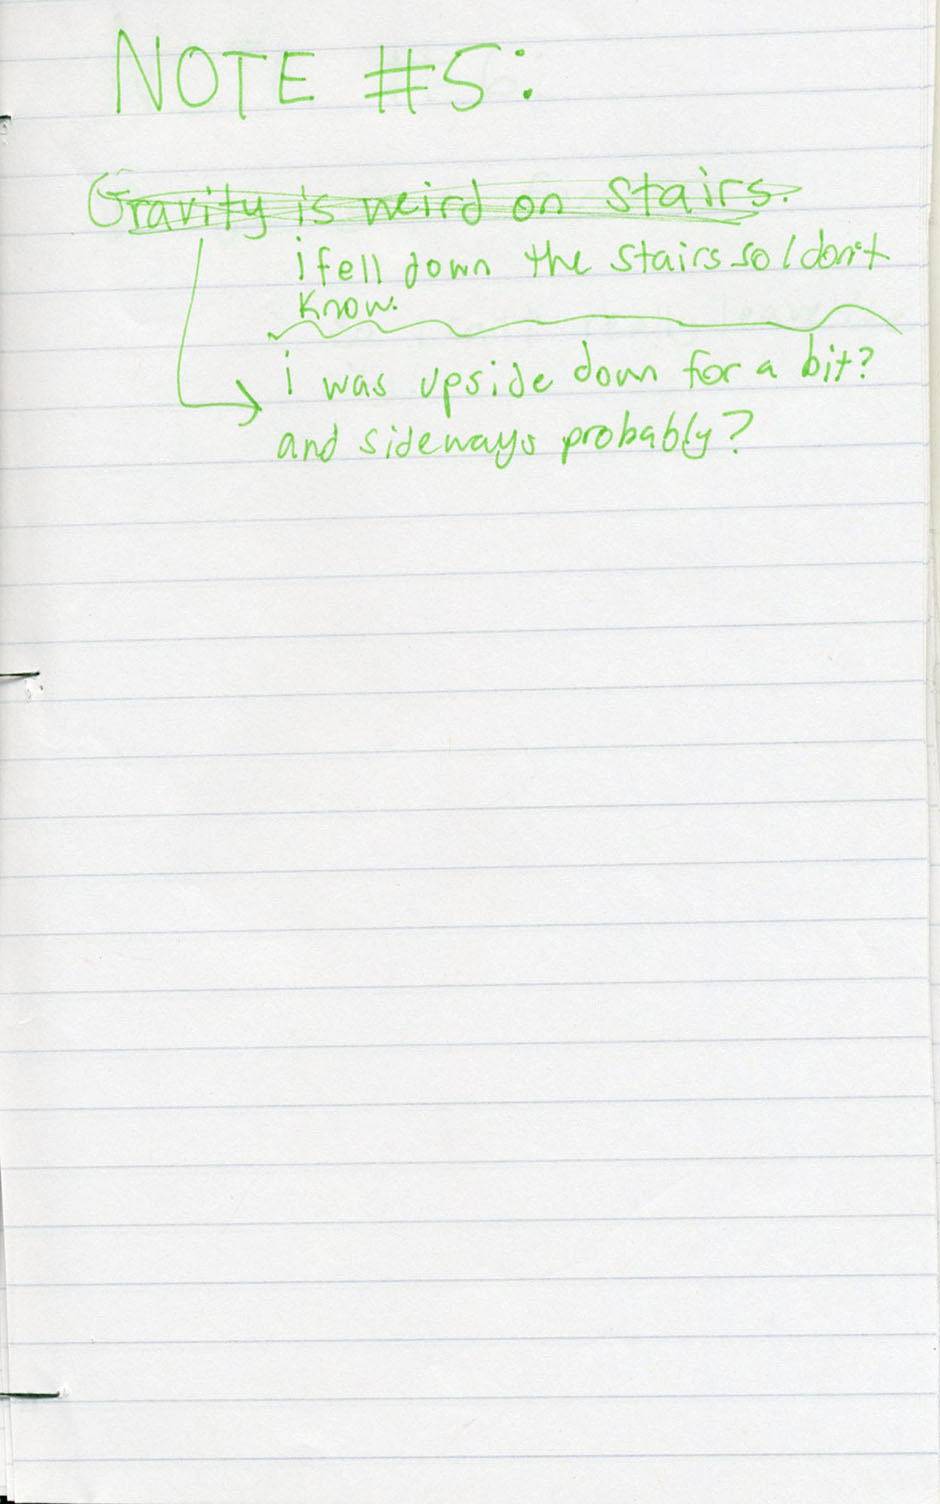 NOTE #5:
Gravity is weird on stairs.
i fell down the stairs so I don't
know.
i was upside down for a bit?
and sideways probably?